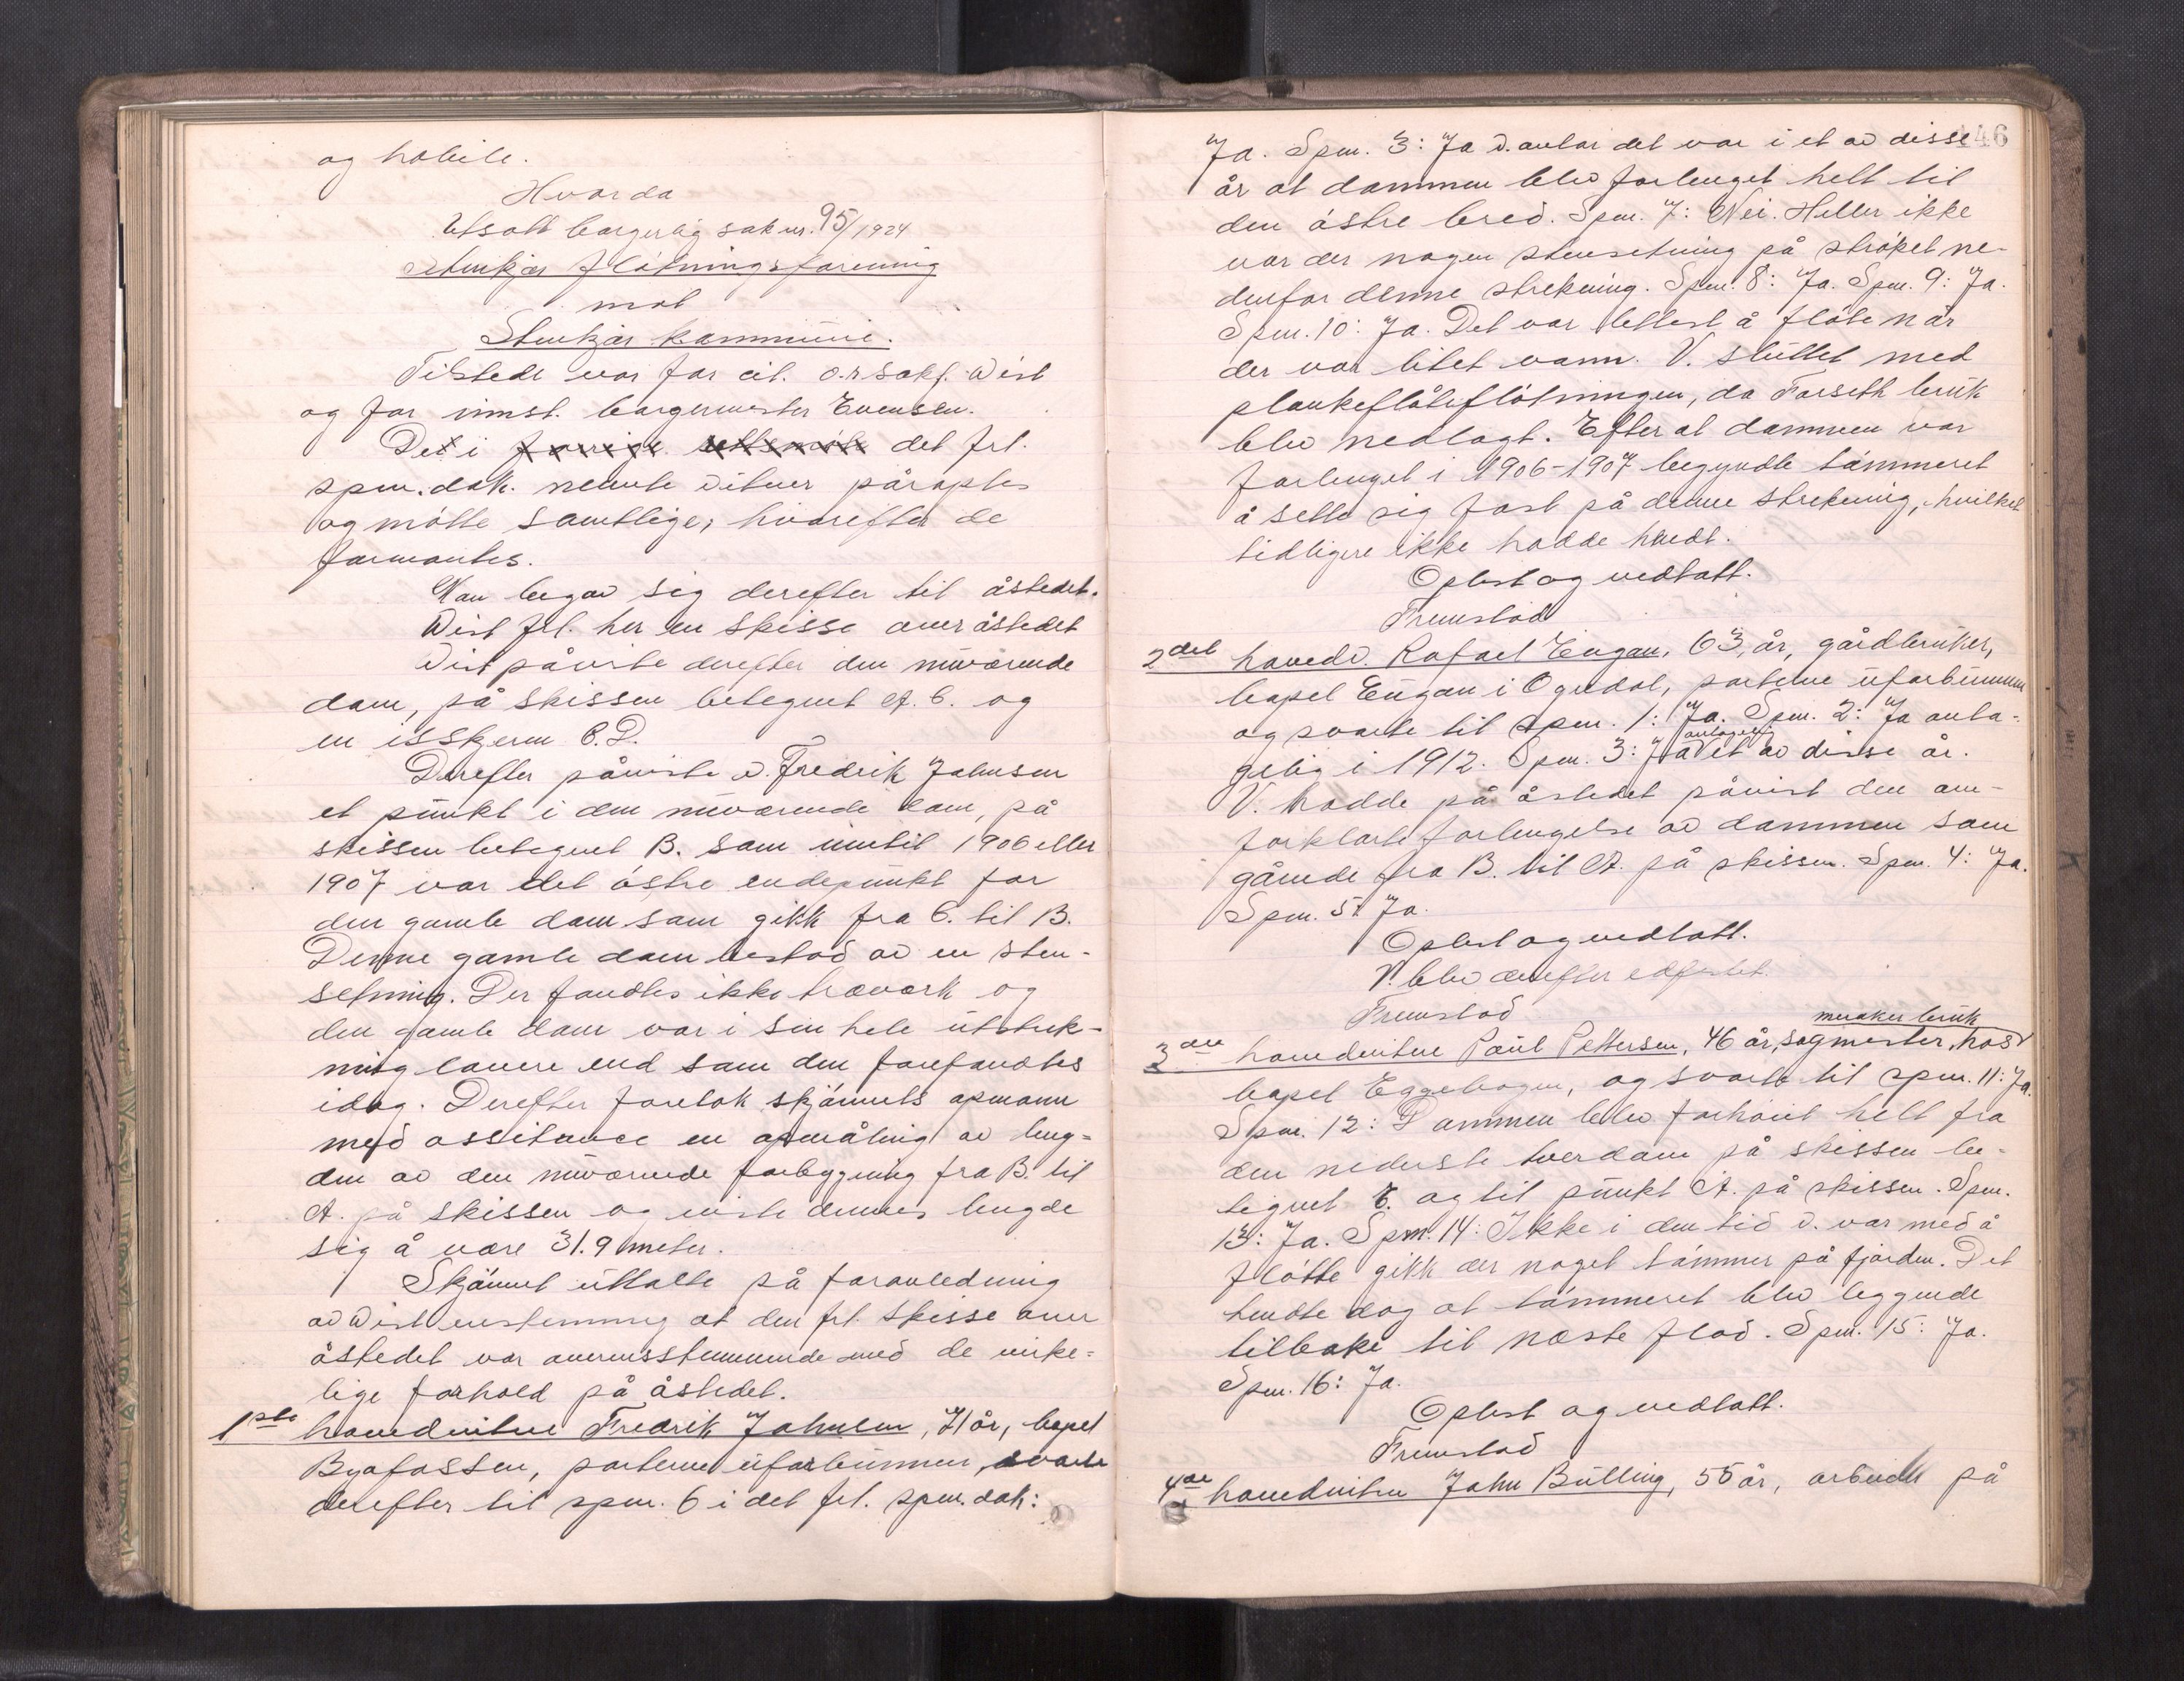 og habile.
Hvorda
Utsatt borgerlig sak nr. 95/1924
Stenkjær fløtningsforening
mot
Stenkjær kommune.
Tilstede var for cit. o.r.sakf. Wist
og for innst. borgermester Evensen.
Det i forrige rettsmøte det frl.
spm.dok. nevnte vitner påroptes
og møtte samtlige, hvorefter de
formantes.
Man begav sig derefter til åstedet.
Wist frl. her en skisse over åstedet
Wist påviste derefter den nuværende
dam, på skissen betegnet A. C. og
en isskjerm C.D.
Derefter påviste v. Fredrik Johnsen
et punkt i den nuværende dam, på
skissen betegnet B. som inntil 1906 eller
1907 var det østre endepunkt for
den gamle dam som gikk fra C. til B.
Denne gamle dam bestod av en sten-
setning. Der fandtes ikke treverk og
den gamle dam var i sin hele utstrek-
ning lavere end som den forefandtes
idag. Derefter foretok skjønnets opmann
med assitance en opmåling av leng-
den av den nuværende forbygning fra B. til
A. på skissen og viste dennes lengde
sig å være 31.9 meter.
Skjønnet uttalte på foranledning
av Wist enstemmig at den frl. skisse over
åstedet var overensstemmende med de virke-
lige forhold på åstedet.
1ste hovedvitne Fredrik Johnsen, 71 år, bopel
Byafossen, parterne uforbunnen, svarte
derefter til spm. 6 i det frl. spm.dok:
146
Ja. Spm. 3: Ja v. antar det var i et av disse
år at dammen blev forlenget helt til
den østre bred. Spm. 7: Nei. Heller ikke
var der nogen stensetning på strøket ne-
denfor denne strekning. Spm. 8: Ja. Spm. 9: Ja.
Spm. 10: Ja. Det var lettest å fløte når
der var litet vann. V. sluttet med
plankeflåtefløtningen, da Forseth bruk
blev nedlagt. Efter at dammen var
forlenget i 1906-1907 begyndte tømmeret
å sette sig fast på denne strekning, hvilket
tidligere ikke hadde hendt.
Oplest og vedtatt.
Fremstod
2det hovedv. Rafael Engan, 63 år, gårdbruker,
bopel Engan i Ogndal, parterne uforbunnen
og svarte til spm. 1: Ja. Spm. 2: Ja anta-
gelig i 1912. Spm. 3: Ja antagelig et av disse år.
V. hadde på åstedet påvist den om-
forklarte forlengelse av dammen som
gående fra B. til A. på skissen. Spm. 4: Ja.
Spm. 5: Ja.
Oplest og vedtatt.
V. blev derefter edfestet.
Fremstod
meraker bruk
3die hovedvitne Paul Pettersen, 46 år, sagmester, hos
bopel Eggebogen, og svarte til spm. 11: Ja.
Spm. 12: Dammen blev forhøiet helt fra
den nederste tverdam på skissen be-
tegnet E. og til punkt A. på skissen. Spm.
13: Ja. Spm. 14: Ikke i den tid v. var med å
fløtte gikk der noget tømmer på fjorden. Det
hendte dog at tømmeret blev liggende
tilbake til næste flod. Spm. 15: Ja.
Spm. 16: Ja.
Oplest og vedtatt.
Fremstod
4de hovedvitne John Bulling, 55 år, arbeider på